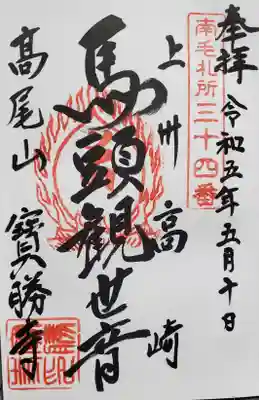 奉拝
令和五年五月十日
南毛札所三十四番
上州高崎
馬頭観世音
高尾山
寶勝寺